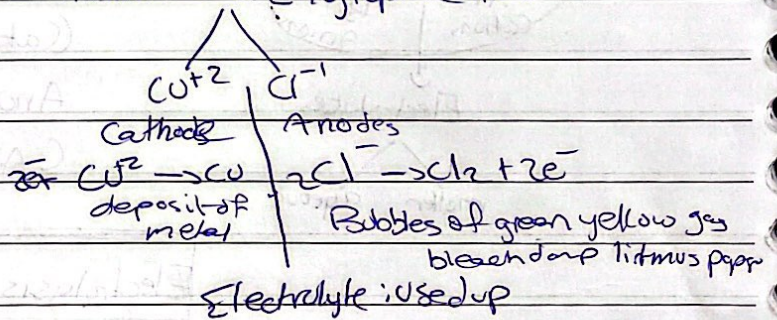 Cu+2 Cl-1
Cathode Anodes
2e- + Cu+2 → Cu 2Cl- → Cl2 + 2e-
deposit of metal Bubbles of green yellow gas
bleach damp litmus paper
Electrolyte : used up